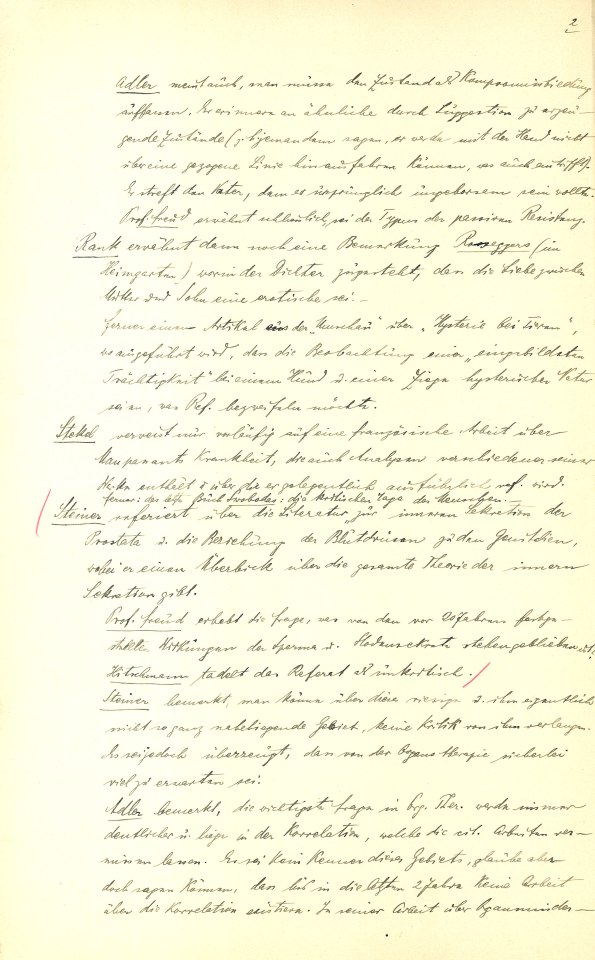 2
Adler meint auch, man müsse den Zustand als Kompromissbildung
auffassen. Er erinnere an ähnliche durch Suggestion zu erzeu-
gende Zustände (z. B. jemandem sagen, er werde mit der Hand nicht
über eine gezogene Linie hinausfahren können, was auch eintrifft).
Er straft den Vater, dem er ursprünglich ungehorsam sein wollte.
Prof. Freud erwähnt schliesslich, sei der Typus der passiven Resistenz.
Rank erwähnt dann noch eine Bemerkung Roseggers (im
Heimgarten) worin der Dichter zugesteht, dass die Liebe zwischen
Mutter und Sohn eine erotische sei.—
Ferner einen Artikel aus der „Umschau" über „Hysterie bei Tieren",
wo ausgeführt wird, dass die Beobachtung einer „eingebildeten
Trächtigkeit" bei einem Hund u. einer Ziege hysterischer Natur
seien, was Ref. bezweifeln möchte.
Stekel verweist nur vorläufig auf eine französische Arbeit über
Maupassants Krankheit, die auch Analysen verschiedener seiner
Werke enthält u. über die er gelegentlich ausführlich ref. wird.
ferner: das letzte Buch Swobodas: die kritischen Tage des Menschen.—
Steiner referiert über die Literatur „zur inneren Sekretion der
Prostata u. die Beziehung der Blutdrüsen zu den Genitalien,
wobei er einen Überblick über die gesamte Theorie der innern
Sekretion gibt.
Prof. Freud erhebt die Frage, was von den vor 20 Jahren festge-
stellten Wirkungen der Sperma u. Hodensekrete stehengeblieben ist?
Hitschmann tadelt das Referat als unkritisch.
Steiner bemerkt, man könne über dieses riesige u. ihm eigentlich
nicht so ganz naheliegende Gebiet, keine Kritik von ihm verlangen.
Er sei jedoch überzeugt, dass von der Organotherapie sicherlich
viel zu erwarten sei.
Adler bemerkt, die wichtigste Frage in Org. Ther. werde immer
deutlicher u. liege in der Korrelation, welche die cit. Arbeiten ver-
missen lassen. Er sei kein Kenner dieses Gebiets, glaube aber
doch sagen können, dass bis in die letzten 2 Jahre keine Arbeit
über die Korrelation existiere. In seiner Arbeit über Organminder—